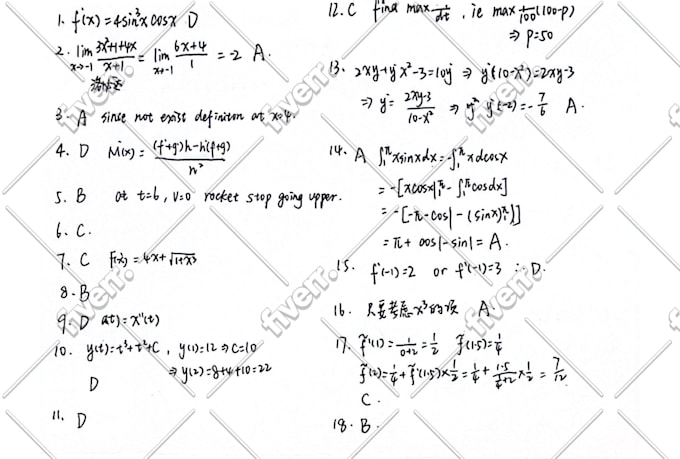 1. f'(x) = 4sin³x cosx D
2. lim x→-1 3x²+1+4x / x+1 = lim x→-1 6x+4 / 1 = -2 A.
3. A since not exist definition at x=4.
4. D M'(x) = (f'+g')h - h'(f+g) / h²
5. B at t=6, v=0 rocket stop going upper.
6. C.
7. C f'(x) = 4x + √1+x³
8. B
9. D a(t) = x''(t)
10. y(t) = t³+t²+C, y(1)=12 ⇒ C=10
⇒ y(2) = 8+4+10 = 22
D
11. D
12. C find max /dt, ie max /100 (100-p)
⇒ p=50
13. 2xy + y'x² - 3 = 10y' ⇒ y'(10-x²) = 2xy-3
⇒ y' = 2xy-3 / 10-x² ⇒ y'(-2) = -7/6 A.
14. A ∫₁^π x sinx dx = -∫₁^π x dcosx
= -[xcosx|₁^π - ∫₁^π cosdx]
= -[-π - cos1 - (sinx)₁^π)]
= π + cos1 - sin1 = A.
15. f'(-1)=2 or f'(-1)=3 ∴ D.
16. 只要考虑x³的项 A.
17. f'(1) = 1/0+2 = 1/2 f(1.5) = 1/4
f(2) = 1/4 + f'(1.5)×1/2 = 1/4 + 1.5 / ×1/2 = 7/12
C.
18. B.
fiverr.
fiverr.
fiverr.
fiverr.
fiverr.
fiverr.
fiverr.
fiverr.